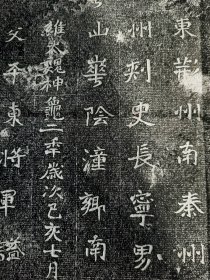 東荊州南秦州
州刺史長寧男
山華陰潼鄉南
維大魏神龜二年歲次己亥七月
父平東將軍